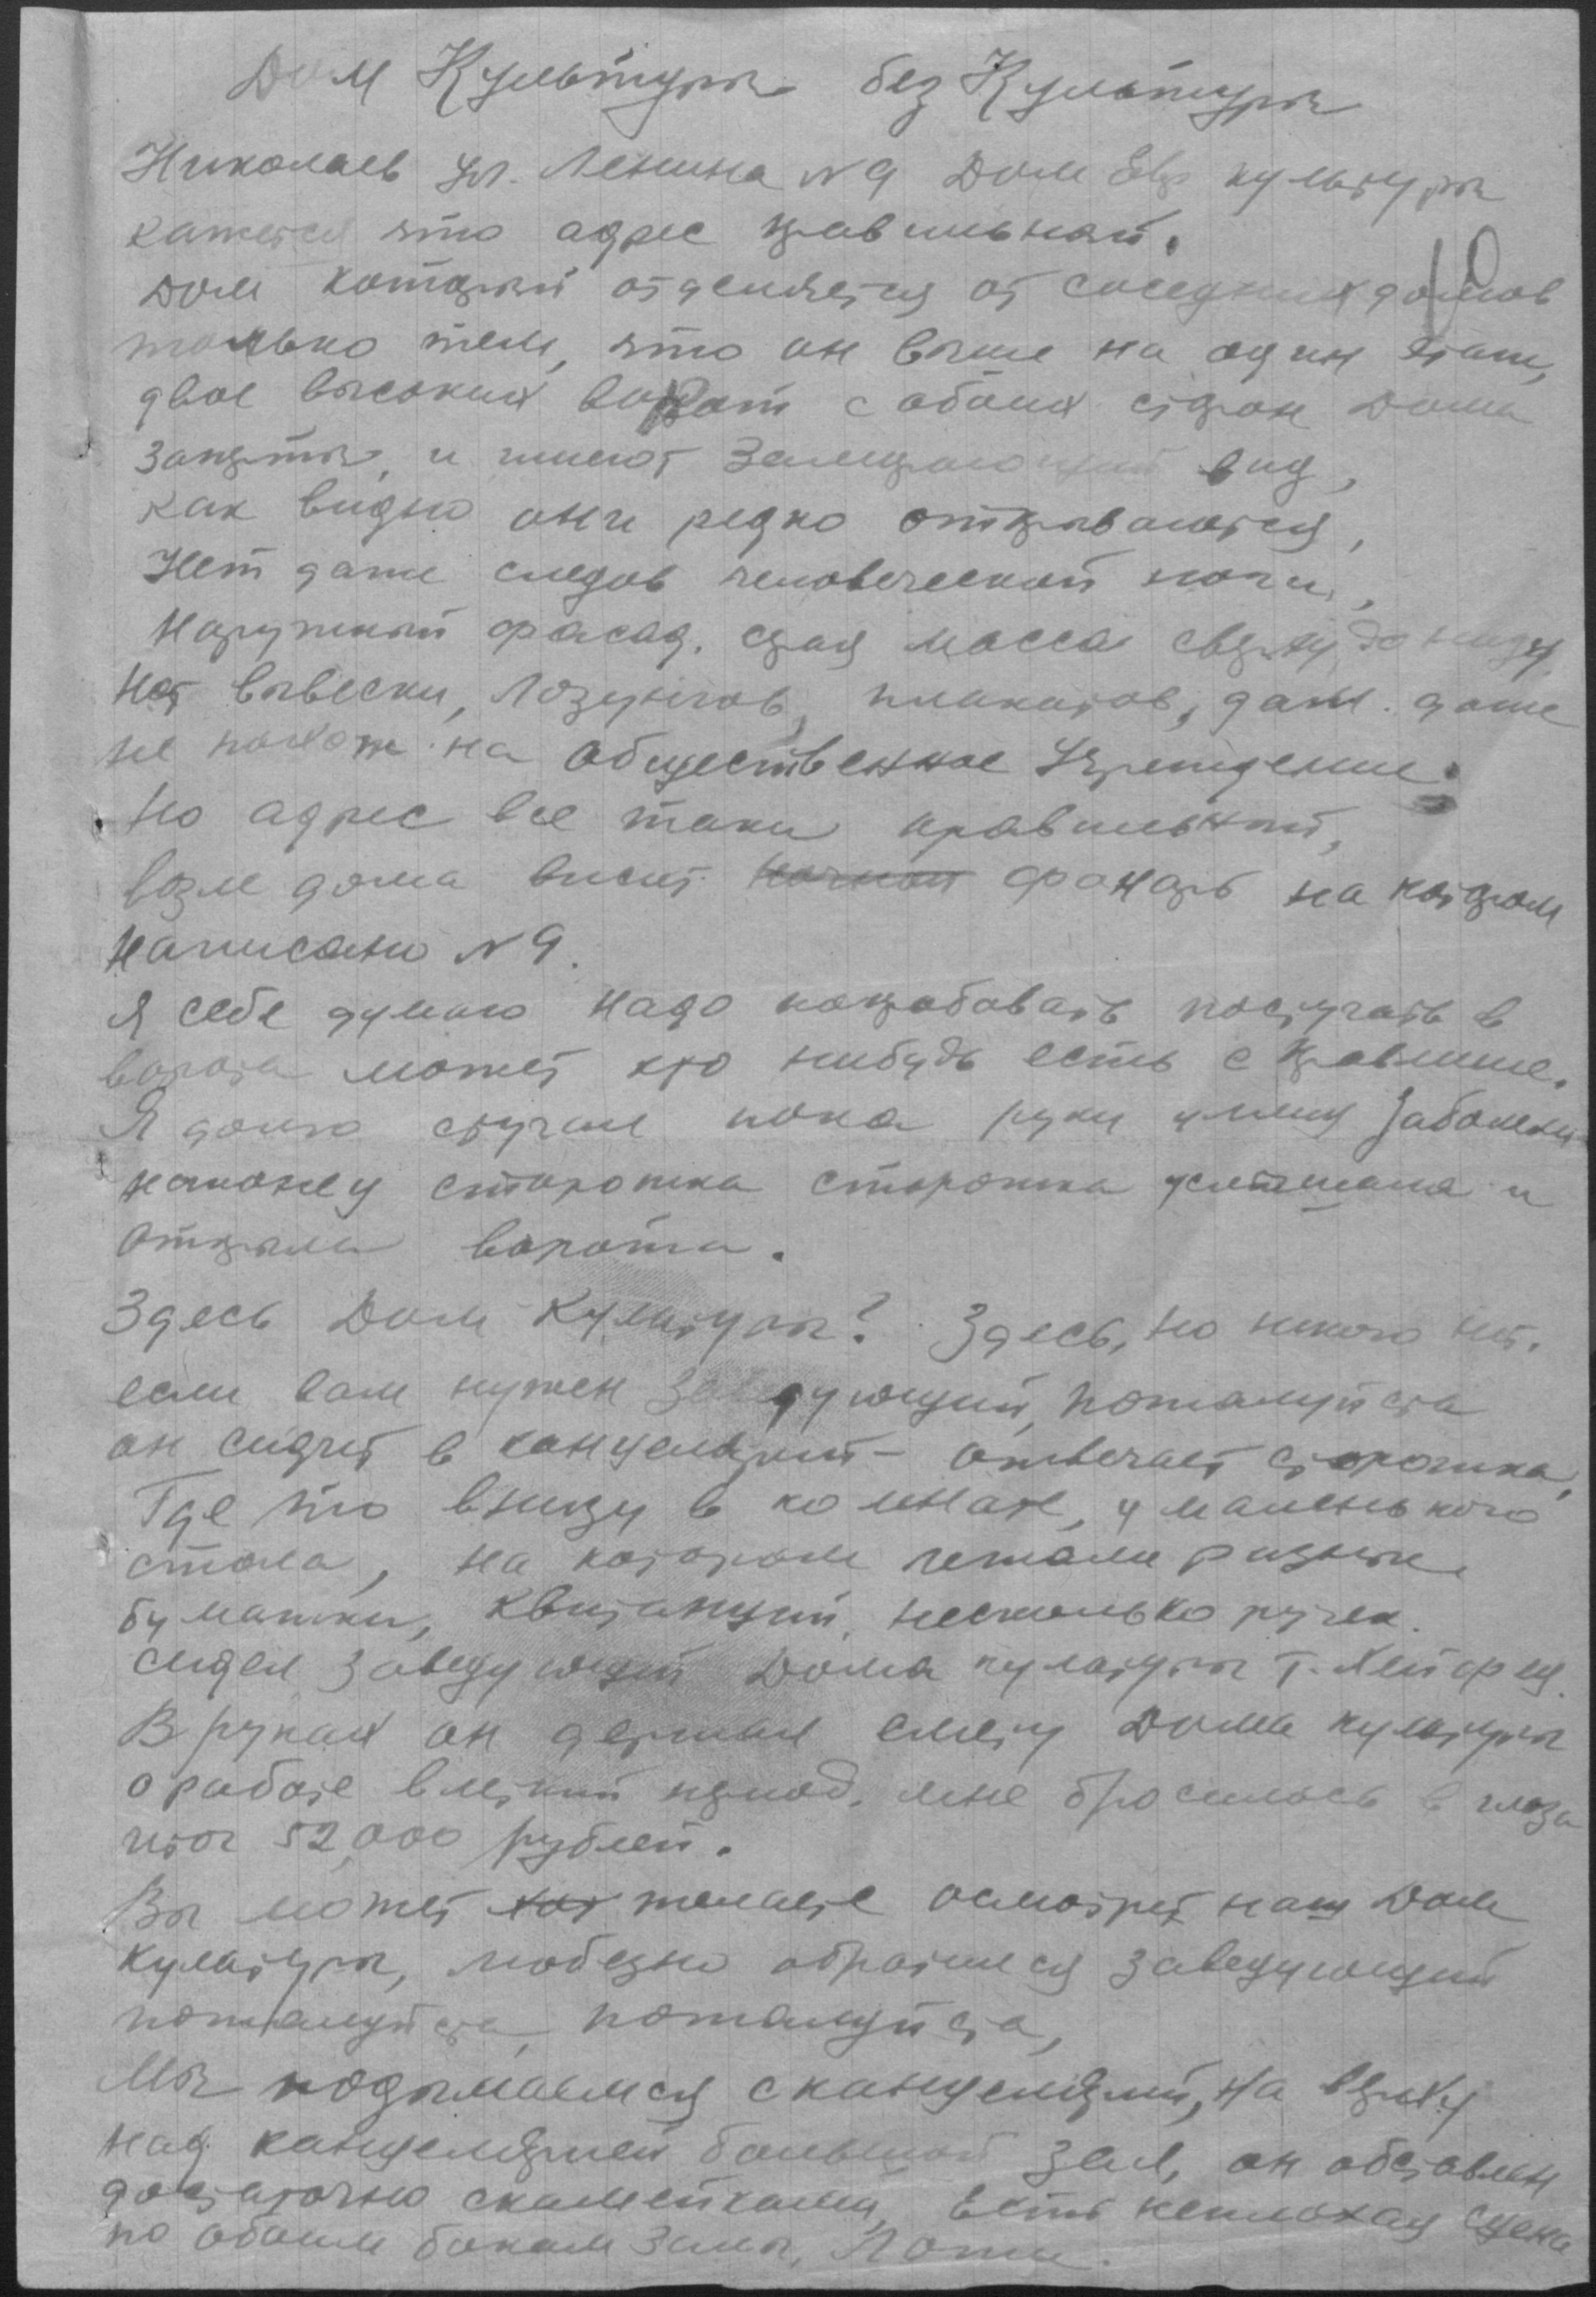 Дом Культуры без Культуры
Николаев ул. Ленина N 9 Дом Евр культуры
кажется что адрес правильный.
10
Дом который отделяется от соседних домов
только тем, что он выше на один этаж,
двое высоких ворот с обоих сторон дома
закрыты, и имеют вид,
как видно они редко открываются,
Нет даже следов человеческой ноги,
Наружный фасад, серая масса сверху до низу,
Нет вывески, Лозунгов, плакатов, даж. даже
не похож на общественное Учреждение.
Но адрес все таки правильный,
возле дома висит ночной фонарь на котором
написано N 9.
Я себе думаю надо попробовать постучать в
ворота может кто нибудь есть с правления.
Я долго стучал пока руки у меня заболели
наконец сторожка сторожка услышала и
открыла ворота.
Здесь Дом Культуры? Здесь, но никого нет.
если вам нужен Заведующий, пожалуйста
он сидит в канцелярии - отвечает сторожка,
Где то внизу в комнате, у маленького
стола, на котором лежали разные
бумажки, квитанций, несколько ручек.
сидел заведующий Дома культуры т.
В руках он держал смету Дома культуры
о работе в летний период, мне бросилось в глаза
итог 52,000 рублей.
Вы может хот желаете осмотреть наш Дом
культуры, любезно обратился заведующий
пожалуйста, пожалуйста,
Мы подымаемся с канцелярий, на верху
над канцелярией большой зал, он обставлен
достаточно скамейками, есть неплохая сцена
по обоим бокам залы, Ложи.